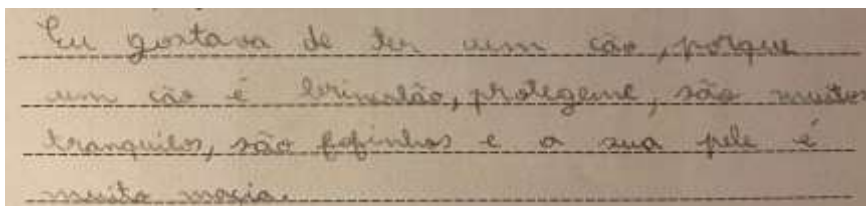 Eu gostava de ter um cão, porque
um cão é brincalão, protegeme, são muitos
tranquilos, são fofinhos e a sua pele é
muito macia.